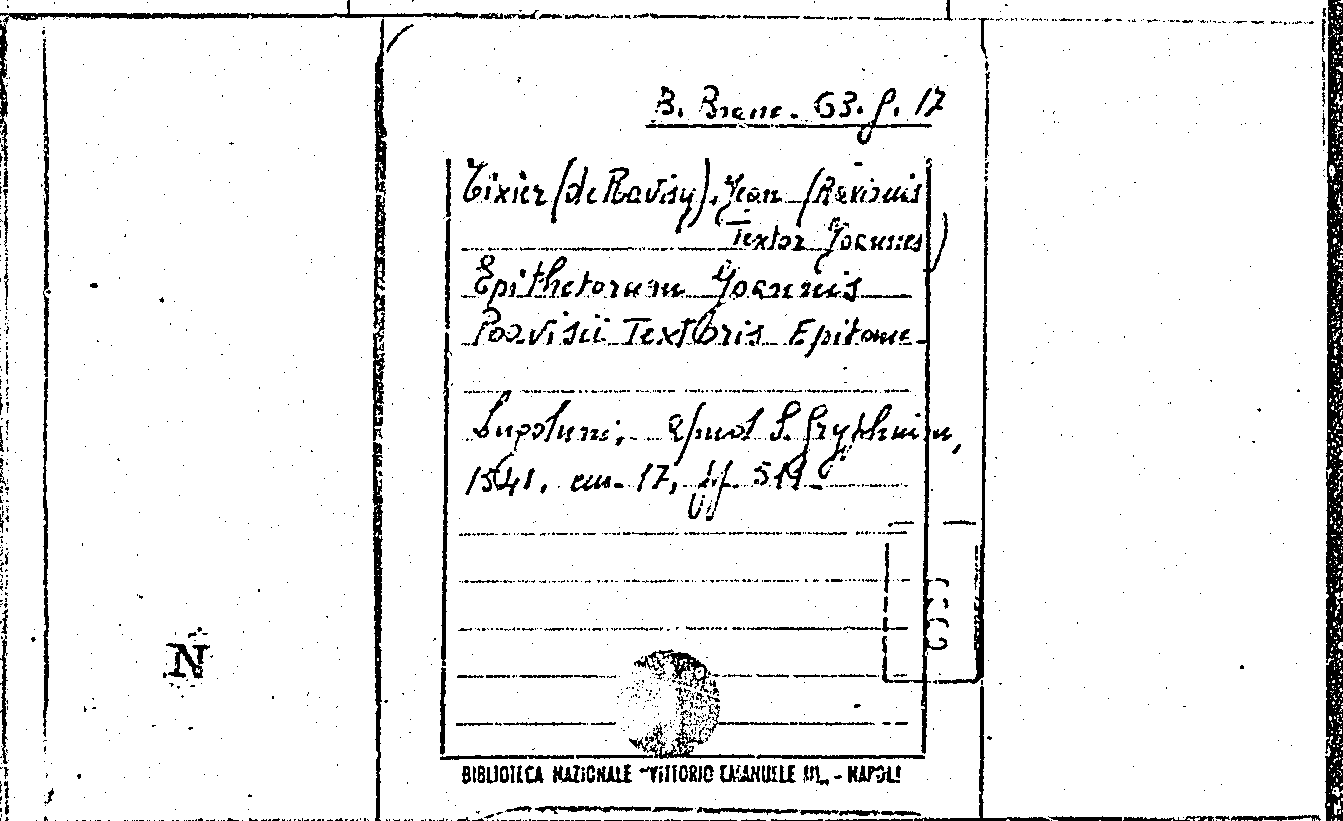 B. Branc. 63. f. 17
Tixier (de Ravisy), Jean (Ravisius
Textor Joannes)
Epithetorum Joannis
Ravisii Textoris Epitome
Lugduni, apud S. Gryphium,
1541. cm. 17, ff. 519
N
BIBLIOTECA NAZIONALE "VITTORIO EMANUELE III" - NAPOLI